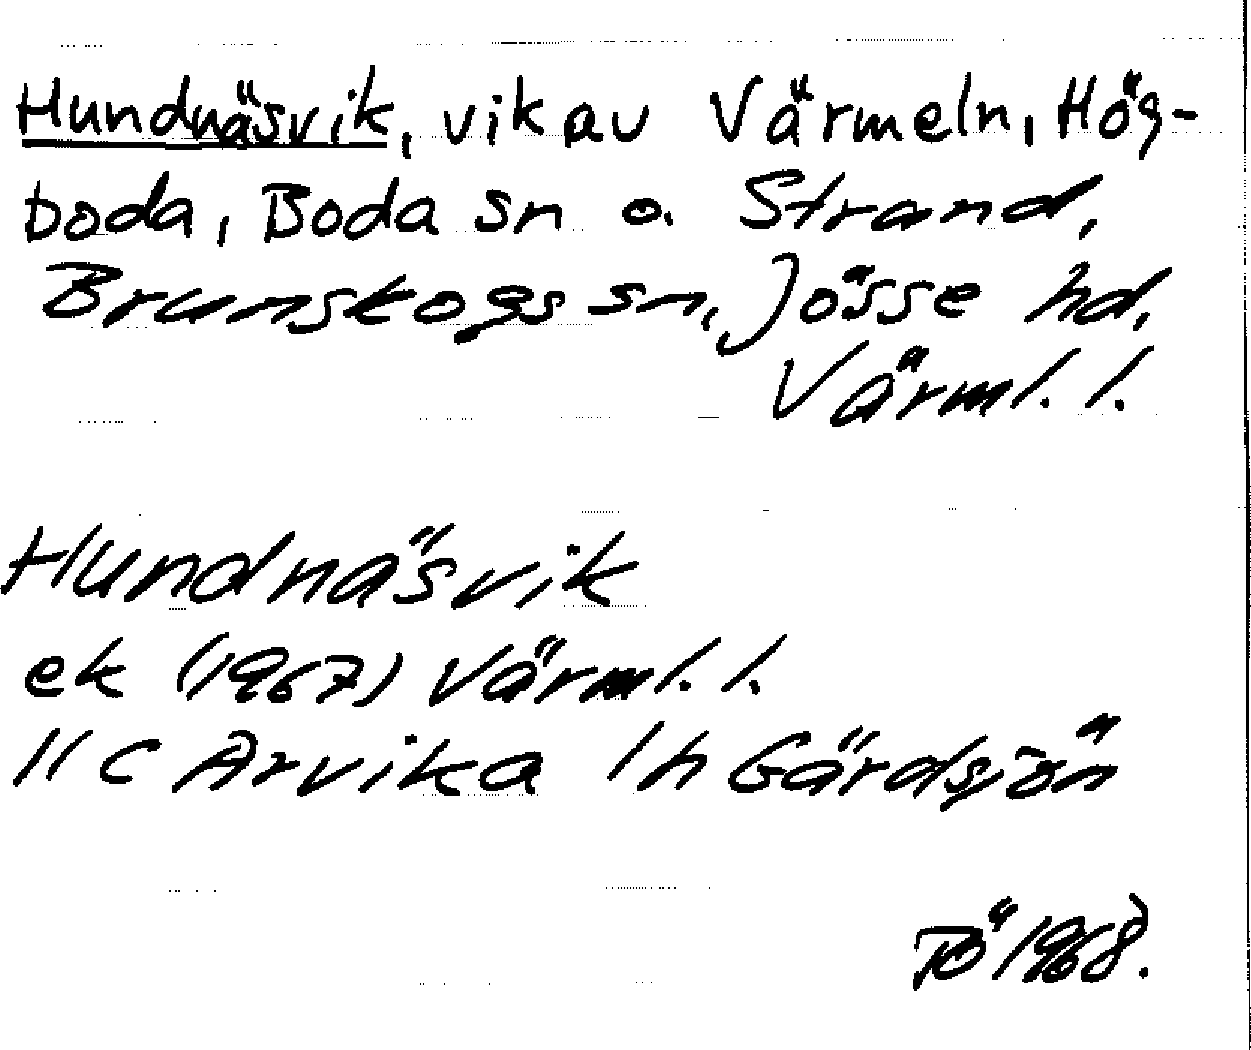 Hundnäsvik, vik av Värmeln, Hög-
boda, Boda sn o. Strand,
Brunskogs sn, Jösse hd,
Värml. l.
Hundnäsvik
ek (1967) Värml. l.
11C Arvika 1h Gärdsjön
TÖ 1968.